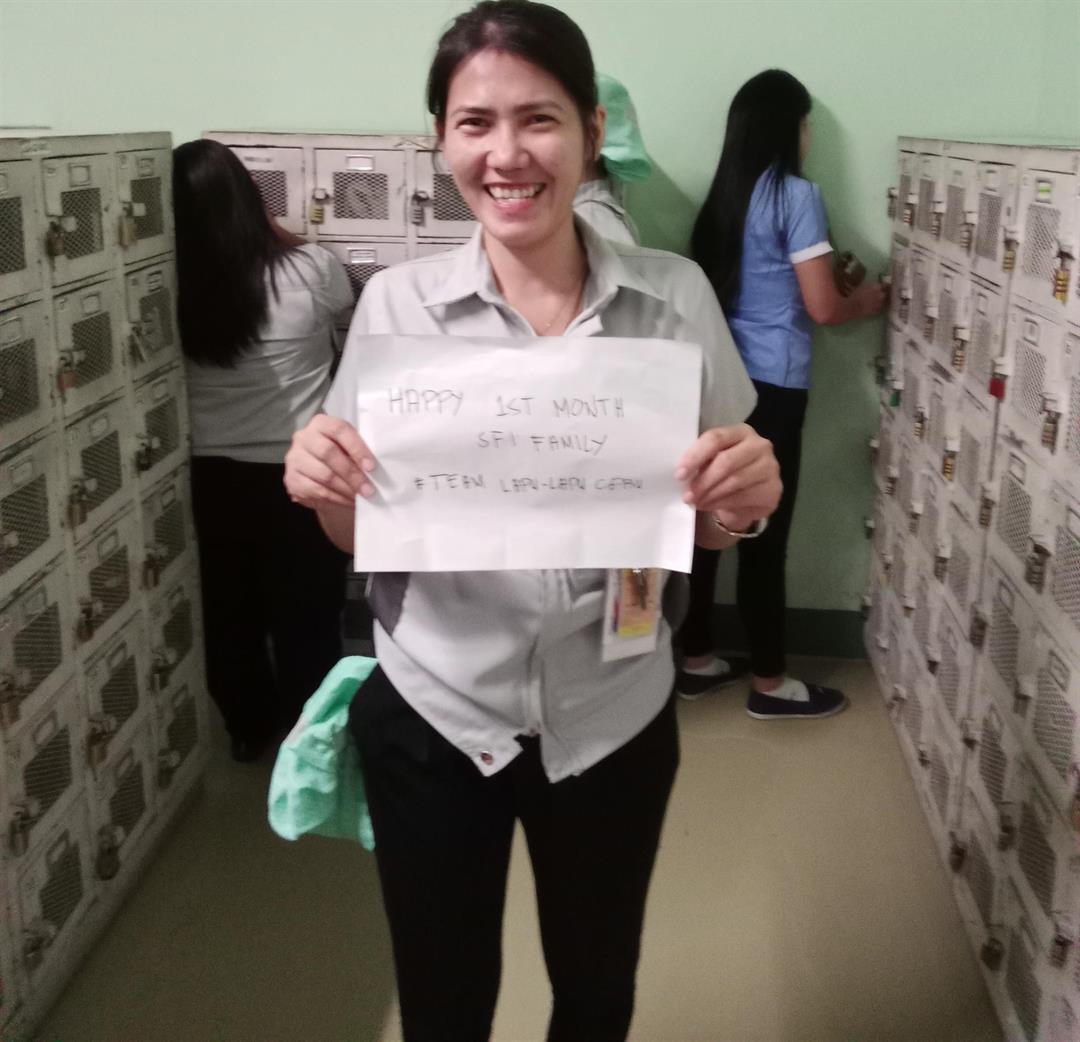 HAPPY 1ST MONTH
SFI FAMILY
#TEAM LAPU-LAPU CEBU